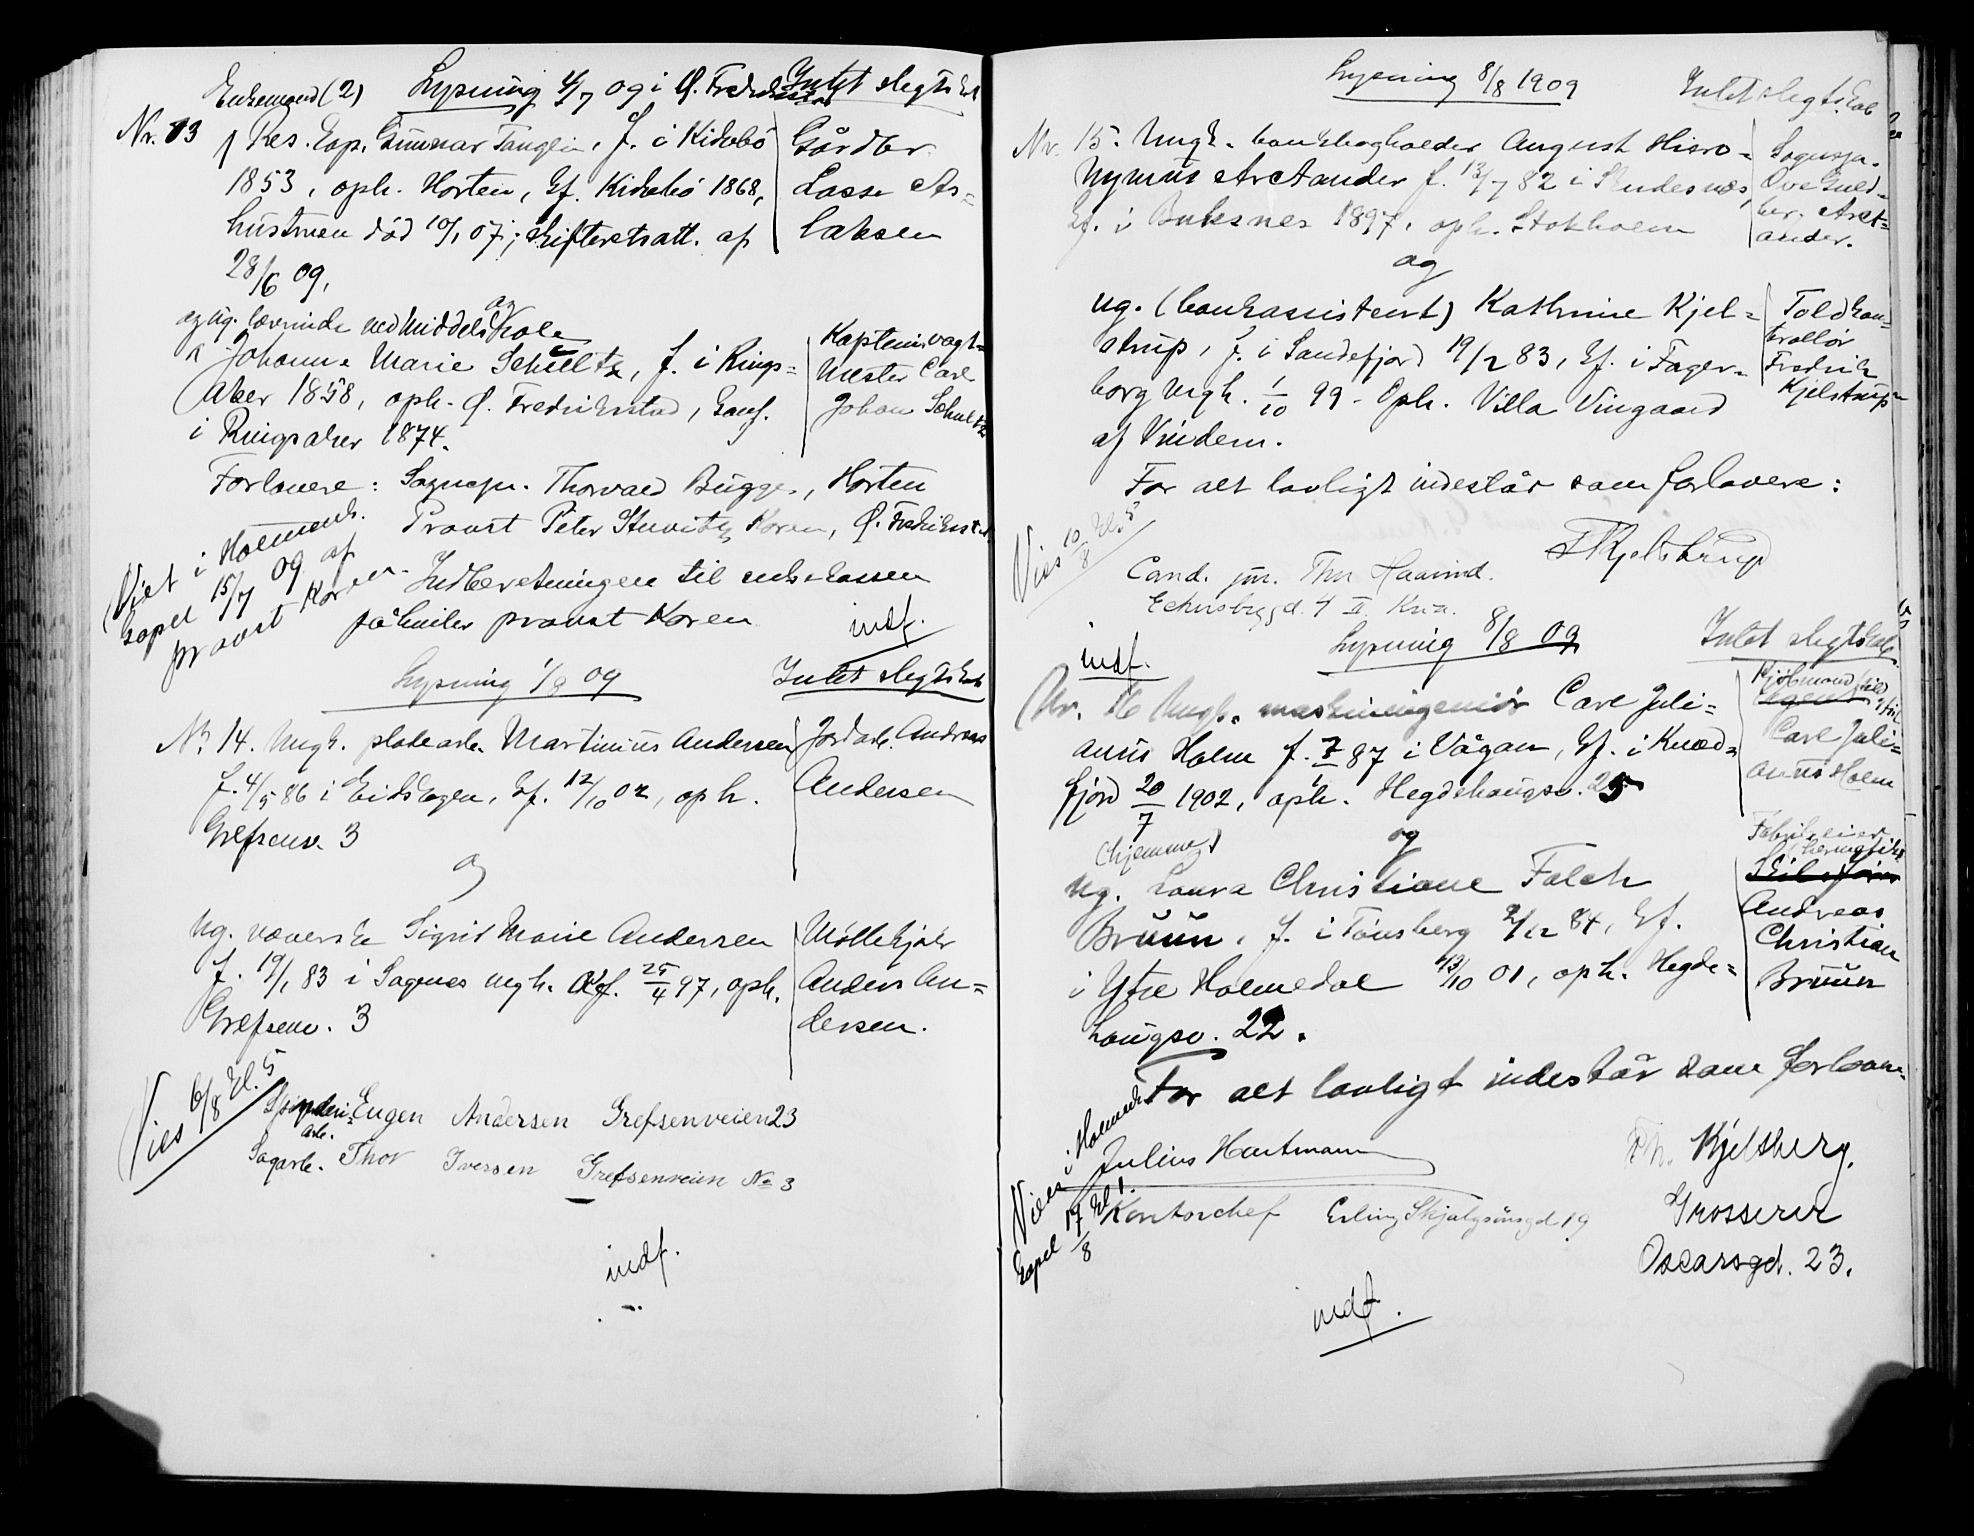 Enkemand (2) Lysning 4/7 09 i Ø. Fredrikstad Intet slegtsk
Nr. 13 Res. Kap. Gunnar Tangen, f. i
1853, oph. Horten, kf. 1868,
hustruen død 10/1 07; skifteretsatt. af
28/6 09.
Gårdbr.
Lasse As=
laksen
og ug. lærerinde ved middelskole
Johanne Marie Schultz, f. i Rings=
aker 1858, oph. Ø. Fredrikstad, konf.
i Ringsaker 1874.
Kaptein, vagt=
mester Carl
Johan Schultz
Forlovere: Sognepr. Thorvald Bugge, Horten
Provst Peter Stuwitz Koren, Ø. Fredrikstad
Viet i Holmenk.
kapel 15/7 09 af
provst Koren.
Indberetningen til enkekassen
påhviler provst Koren
indf.
Lysning 1/8 09 Intet slegtsk
Nr 14. Ungk. pladearb. Martinius Andersen
f. 4/5 86 i Eidskogen, kf. 12/10 02, oph.
Grefsenv. 3
Jordarb. Andreas
Andersen
og
Ug. væverske Sigrid Marie Andersen
f. 19/1 83 i Sagnes mgh. kf. 25/4 97, oph.
Grefsenv. 3
Møllekjør
Anders An=
dersen.
Vies 6/8 kl. 5
Spinderi= arb. Eugen Andersen Grefsenveien 23
Sagarb. Thor Iversen Grefsenveien No 3
indf.
Lysning 8/8 1909 Intet slegtskab
Nr. 15. Ungk. bankbogholder August Hiero=
nymus Arctander f. 13/7 82 i Skudesnes,
kf. i Buksnes 1897, oph. Stokholm
Sognepr.
Ove Guld=
ber. Arct=
ander.
og
ug. (bankassistent) Kathrine Kjel=
strup, f. i Sandefjord 19/2 83, kf. i Fager=
borg mgh. 1/10 99 - Oph. Villa Vingaard
af Vindern.
Toldkon=
trollør
Fredrik
Kjelstrup
For alt lovligt indestår som forlovere:
Vies 10/8 kl. 5
F Kjelstrup
Cand. jur. Thv Haavind.
Eckersbergsgd. 4 II Kra.
indf.
Lysning 8/8 09 Intet slegtskab
Nr. 16 Ungk. maskiningeniør Carl Juli=
anus Holm f. 7/1 87 i Vågan, kf. i Kvæd=
fjord 20/7 1902, oph. Hegdehaugsv. 25
Carl Juli=
anus Holm
og
(hjemme)
ug. Laura Christiane Falch
Bruun, f. i Tønsberg 2/12 84, kf.
i Ytre Holmedal 13/10 01, oph. Hegde=
haugsv. 22.
Fabrikeier
Andreas
Christian
Bruun
For alt lovligt indestår som forlovere
Vies i Holmenk
kapel 17/8 kl 1.
Julius Hartmann
Kontorchef Erling Skjalgsønsgd 19
Th. Kjelsberg.
Grosserer
Oscarsgd. 23.
indf.